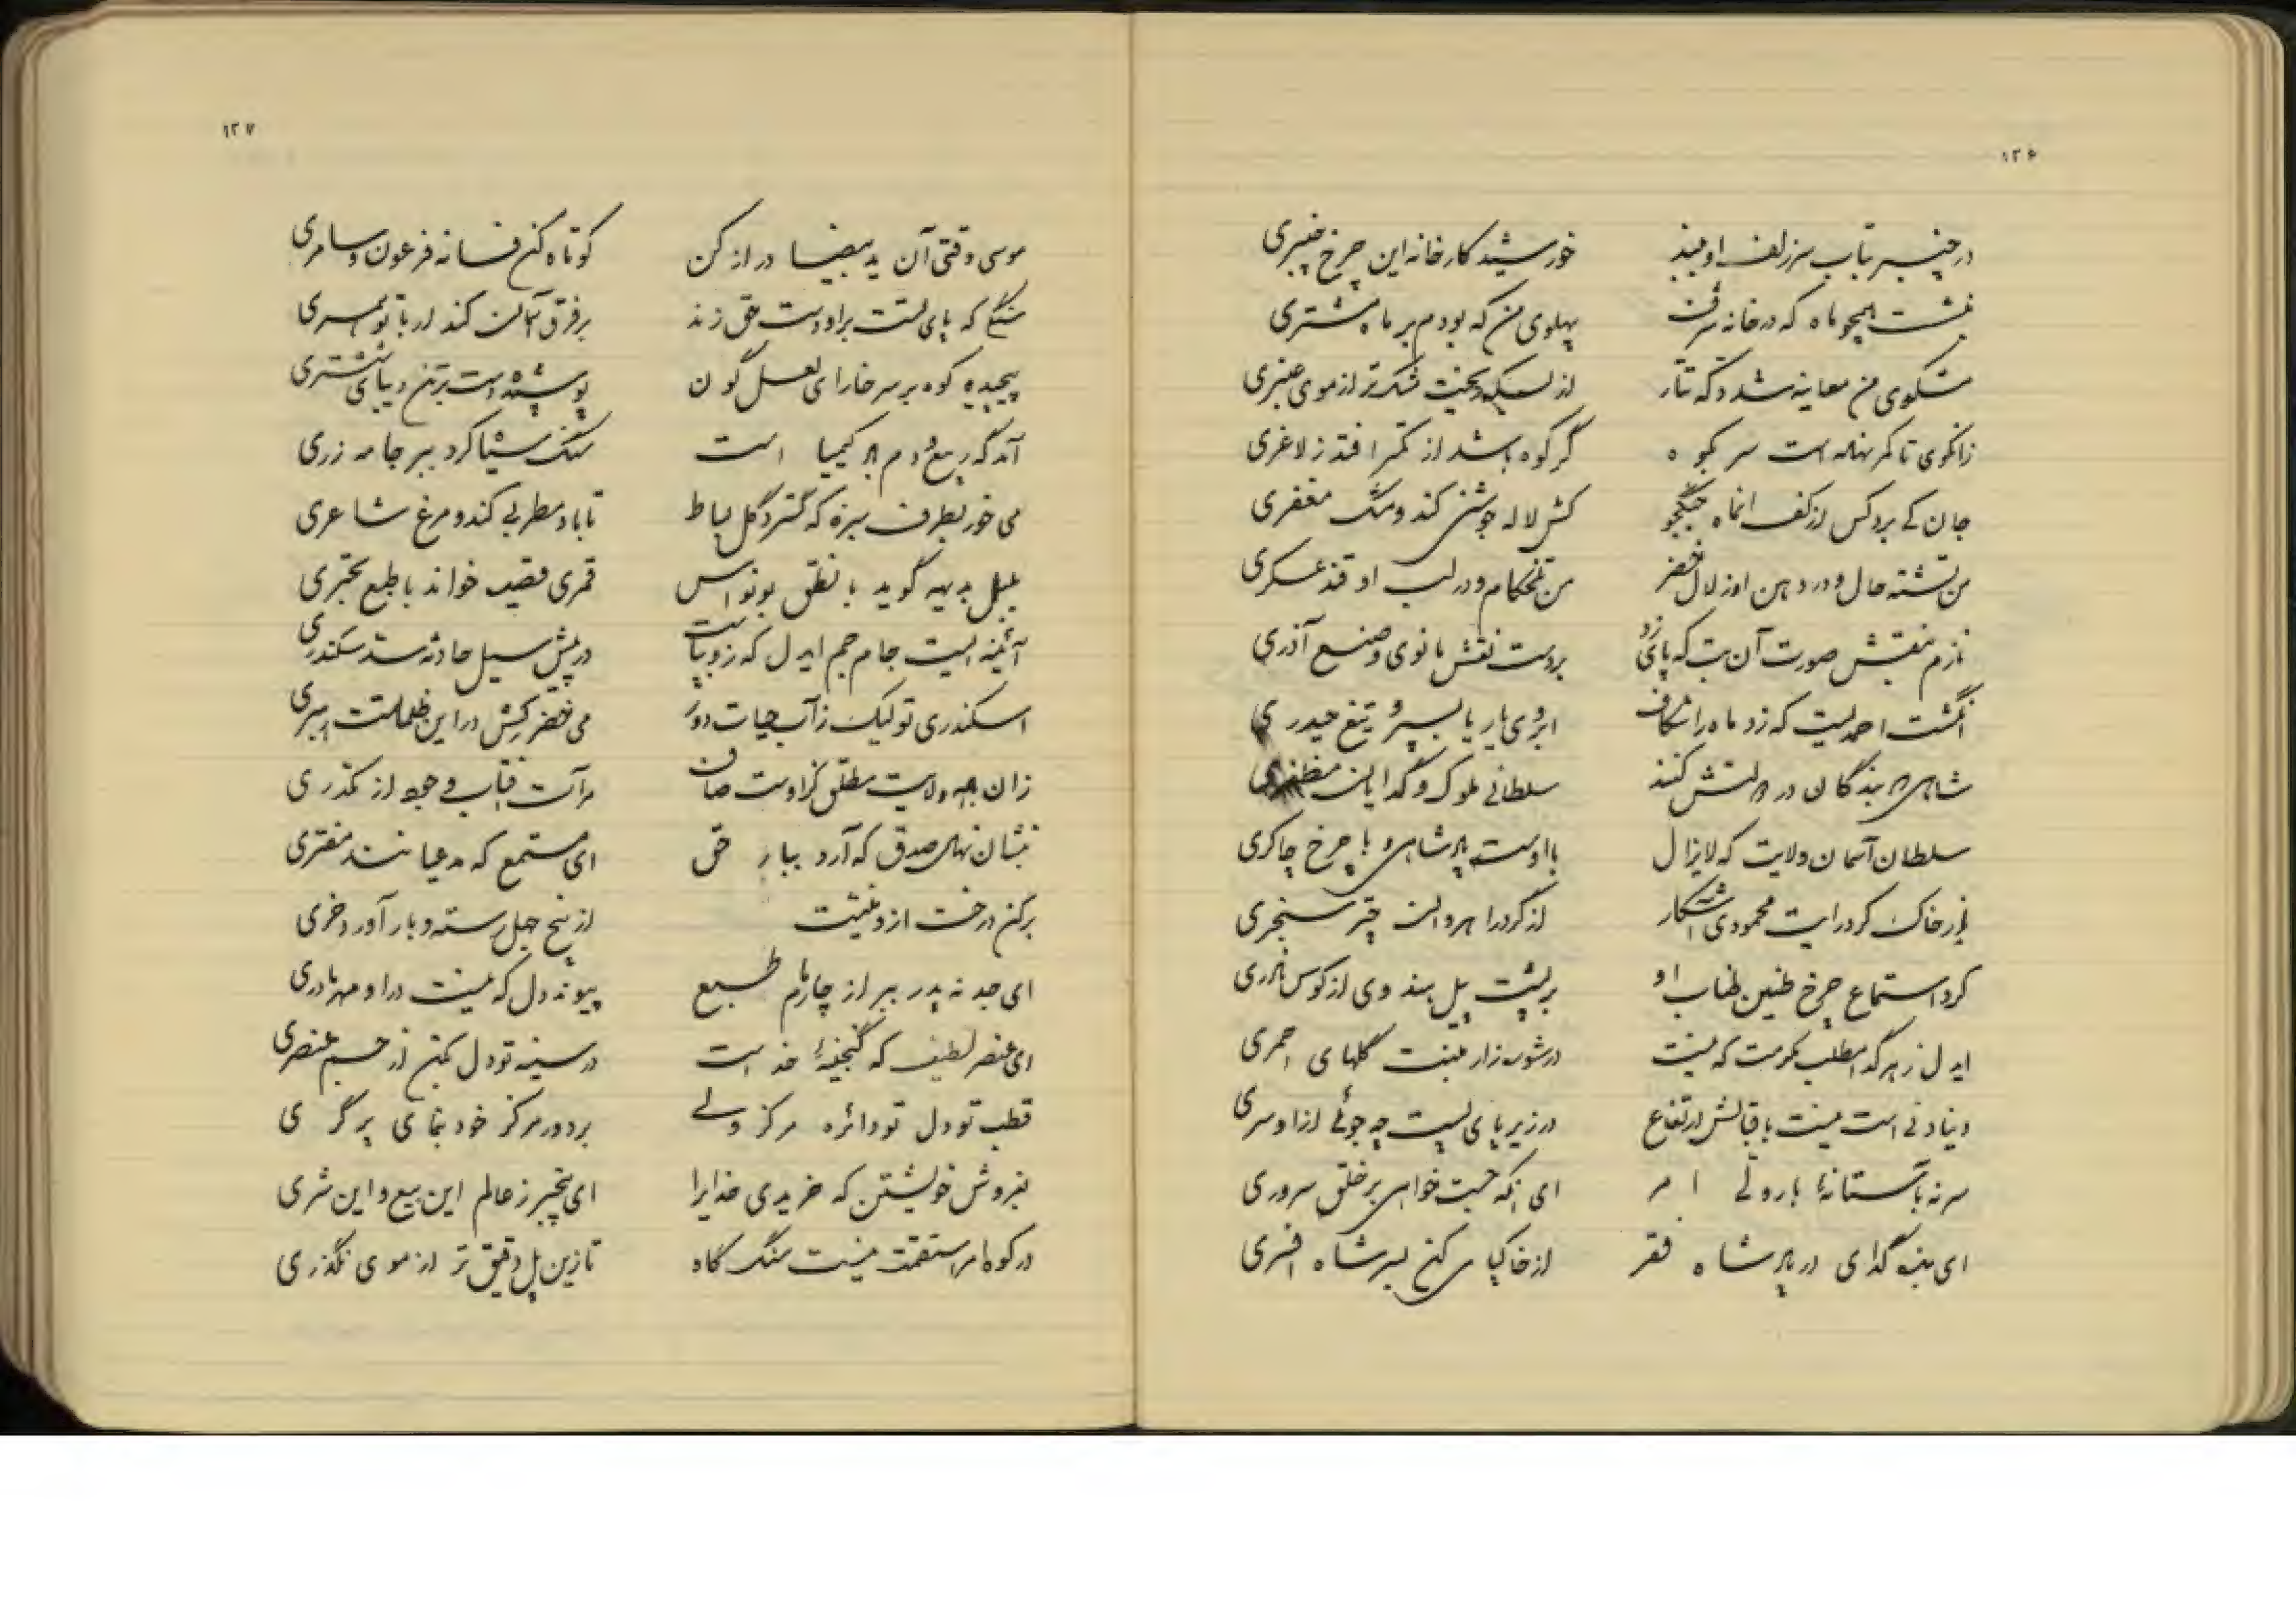 ۱۲۶
در چنبر بتاب سر زلف او ببند خورشید کارخانه این چرخ چنبری
بنشست همچو ماه که در خانه شرف پهلوی من که بودم بر ماه مشتری
مشکوی من معاینه شد دکه تتار از بسکه ریخت مشک تر از موی عنبری
زانکوی تا کمر نهاده است سر بکوه گر کوه باشد از کمر افتد ز لاغری
جان کی برد کس از کف انماه جنگجو کش لاله جوشنی کند و مشک مغفری
من تشنه حال و در دهن او زلال خضر من تلخکام و در لب او قند عسکری
نازم بنقش صورت آن بت که پای زد بر دست نقش مانوی و صنع آذری
انگشت احمدیست که زد ماه را شکاف ابروی یار یا بسپر تیغ حیدری
شاهی که بندگان در دولتش کنند سلطانی ملوک و گدایان مظفری
سلطان آسمان ولایت که لایزال با اوست هر شاهی و با چرخ چاکری
از خاک کرد رایت محمودی آشکار از گرد راه روان چتر سنجری
کرد استماع چرخ طنین طناب او بر پشت پیل هندوی از کوس نادری
ایدل ز هر گدا مطلب مکرمت که نیست در شوره‌زار منبت گلهای احمری
دنیا دنی است نیست باقبالش ارتفاع در زیر پای پست چه جوئی ازا و سری
سر نه بآستانه با روی امر ای انکه جست خواهی بر خلق سروری
ای بنده گدای در پادشاه فقر از خاک پا می کن بسر شاه افسری
۱۲۷
موسی وقتی آن ید بیضا دراز کن کوتاه کن فسانه فرعون و سامری
سنگی که پای تست براو دست حق زند بر فرق آسمان کند ار با تو همسری
پیچیده کوه بر سر خارای لعل گون پوشیده دشت بر تن دیبای ششتری
آمد گه ربیع و دم کیمیا است سنگ سیا کرد ببر جامه زری
می خور بطرف سبزه که گسترد گل بساط تا باد مطربی کند و مرغ شاعری
بلبل بدیهه گوید با نطق بونواس قمری قصیده خواند با طبع بحتری
آئینه ایست جام جم ایدل که زو بپاست در پیش سیل حادثه سد سکندری
اسکندری تو لیک ز آب حیات دور می خضر کش در این ظلمات رهبری
زان می ولایت مطلق گراوست صاف مرآت آفتاب وجود از مکدری
بنشان نهال صدق که آرد ببار حق ای مستمع که مدعیانند مفتری
برکن درخت ازو منیت از بیخ جهل رسته و بار آورد خری
ای جد نه پدر ببر از چار مام طبع پیوند دل که نیست در او مهر مادری
ای عنصر لطیف که گنجینه خداست در سینه تو دل بکن از جسم عنصری
قطب تو دل تو دائره مرکز ولی بر دور مرکز خود بنمای پرگری
بفروش خویشتن که خریدی خدایرا ای بیخبر ز عالم این بیع و این شری
در کوه امر استقمت نیست سنگ کاه تا زین پل دقیق‌تر از موی نگذری